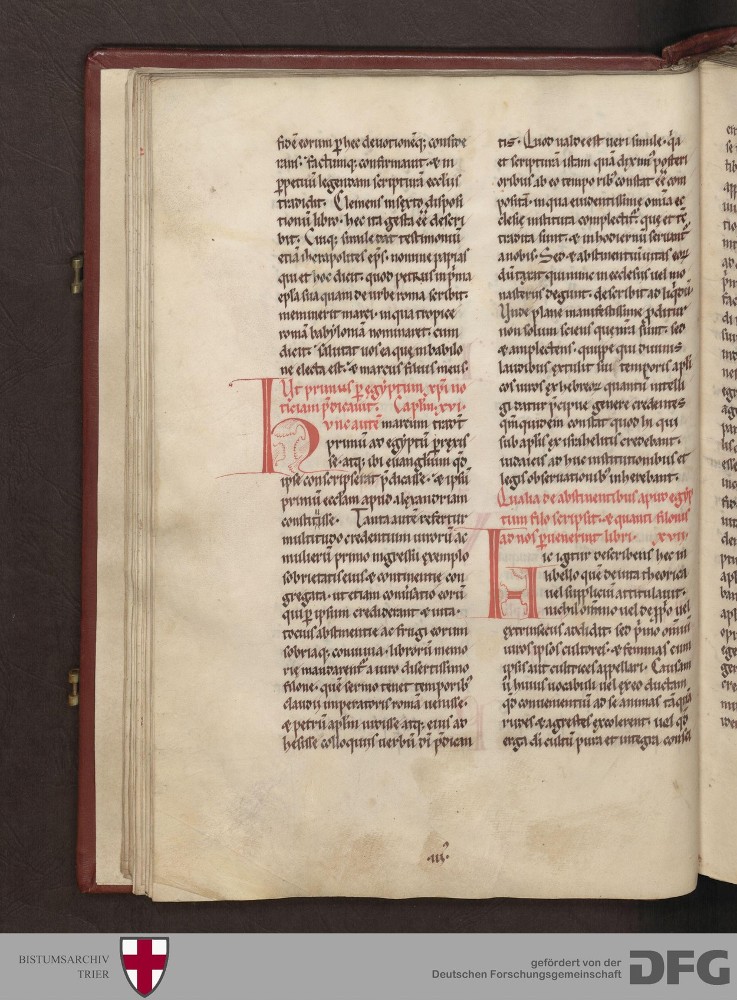 fidē eorum ꝑ hec deuotionēq; conside
rans. factumq; confirmauit. ⁊ in
ꝑpetuū legendam scripturā eccl'iis
tradidit. Clemens in sexto disposi
tionū libro. hec ita gesta eē descri
bit. Cuiq; simile dat testimoniū
etiā iherapolites ep̄s. nomine papias
qui et hoc dicit. quod petrus in p̄ma
ep̄la sua quam de urbe roma scribit.
meminerit marci. in qua tropice
romā babyloniā nominaret. cum
dicit. Salutat uos ea que in babilo
ne electa est. ⁊ marcus filius meus.
Ut primus ꝑ egyptum xp̄i no
ticiam p̄dicauit. Cap̄lm. xvi.
HVnc autē marcum tradūt
primū ad egyptū ꝑrexis
se. atq; ibi euangl'ium qd̄
ipse conscripserat p̄dicasse. ⁊ ipsū
primū eccl'am apud alexandriam
constituisse. Tanta autē refertur
multitudo credentium uirorū ac
mulierū primo ingressu exemplo
sobrietatis eius ⁊ continentie con
gregata. ut etiam conu̓satio eorū
qui ꝑ ipsum crediderant ⁊ uita.
tocius abstinentie ac frugi eorum
sobriaq; conuiuia. librorū memo
rie mandarent᷑ a uiro disertissimo
filone. quē sermo tenet temporib᷒
claudij imperatoris romā uenisse.
⁊ petrū apl'm uidisse atq; eius ad
hesisse colloquijs uerbū dī p̄dican
tis. Quod ualde est ueri simile. q̇a
et scripturā istam quā diximus posteri
oribus ab eo temporib᷒ constat eē com
positā. in qua euidentissime om̄ia ec
clesię instituta complectit᷑. que et tc̄
tradita sunt. ⁊ in hodiernū seruant᷑
a nobis. Sed ⁊ abstinentiū uitas eoꝝ
dūtaxat qui nunc in ecclesiis uel mo
nasteriis degunt. describit ad liq̇dū.
Unde plane manifestissime ꝓditur
non solum sciens que nr̄a sunt. sed
⁊ amplectens. quippe qui diuinis
laudibus extulit sui temporis apl'i
cos uiros ex hebreoꝝ quantū intelli
gi datur p̄cipue genere credentes
qm̄ quidem constat quod hi qui
sub apl'is ex isrl'helitis credebant.
iudaicis adhuc institutionibus et
legis obseruationib᷒ inherebant.
Qualia de abstinentibus apud egyp
tum filo scripsit. ⁊ quanti filonis
ad nos ꝑuenerint libri. xvii.
Hic igitur describens hec in
libello quē de uita theorica
uel supplicum attitulauit.
nichil om̄ino uel de ꝓprio uel
extrinsecus addidit. sed p̄mo om̄iū
uiros ipsos cultores. ⁊ feminas cum
ipsis ait cultrices appellari. Causam
ū huius uocabuli uel ex eo ductam
qd̄ conuenientiū ad se animas tāquā
rudes ⁊ agrestes excolerent. uel qd̄
erga dī cultū pura et integra consci
.iii᷒.
BISTUMSARCHIV
TRIER
gefördert von der
Deutschen Forschungsgemeinschaft
DFG